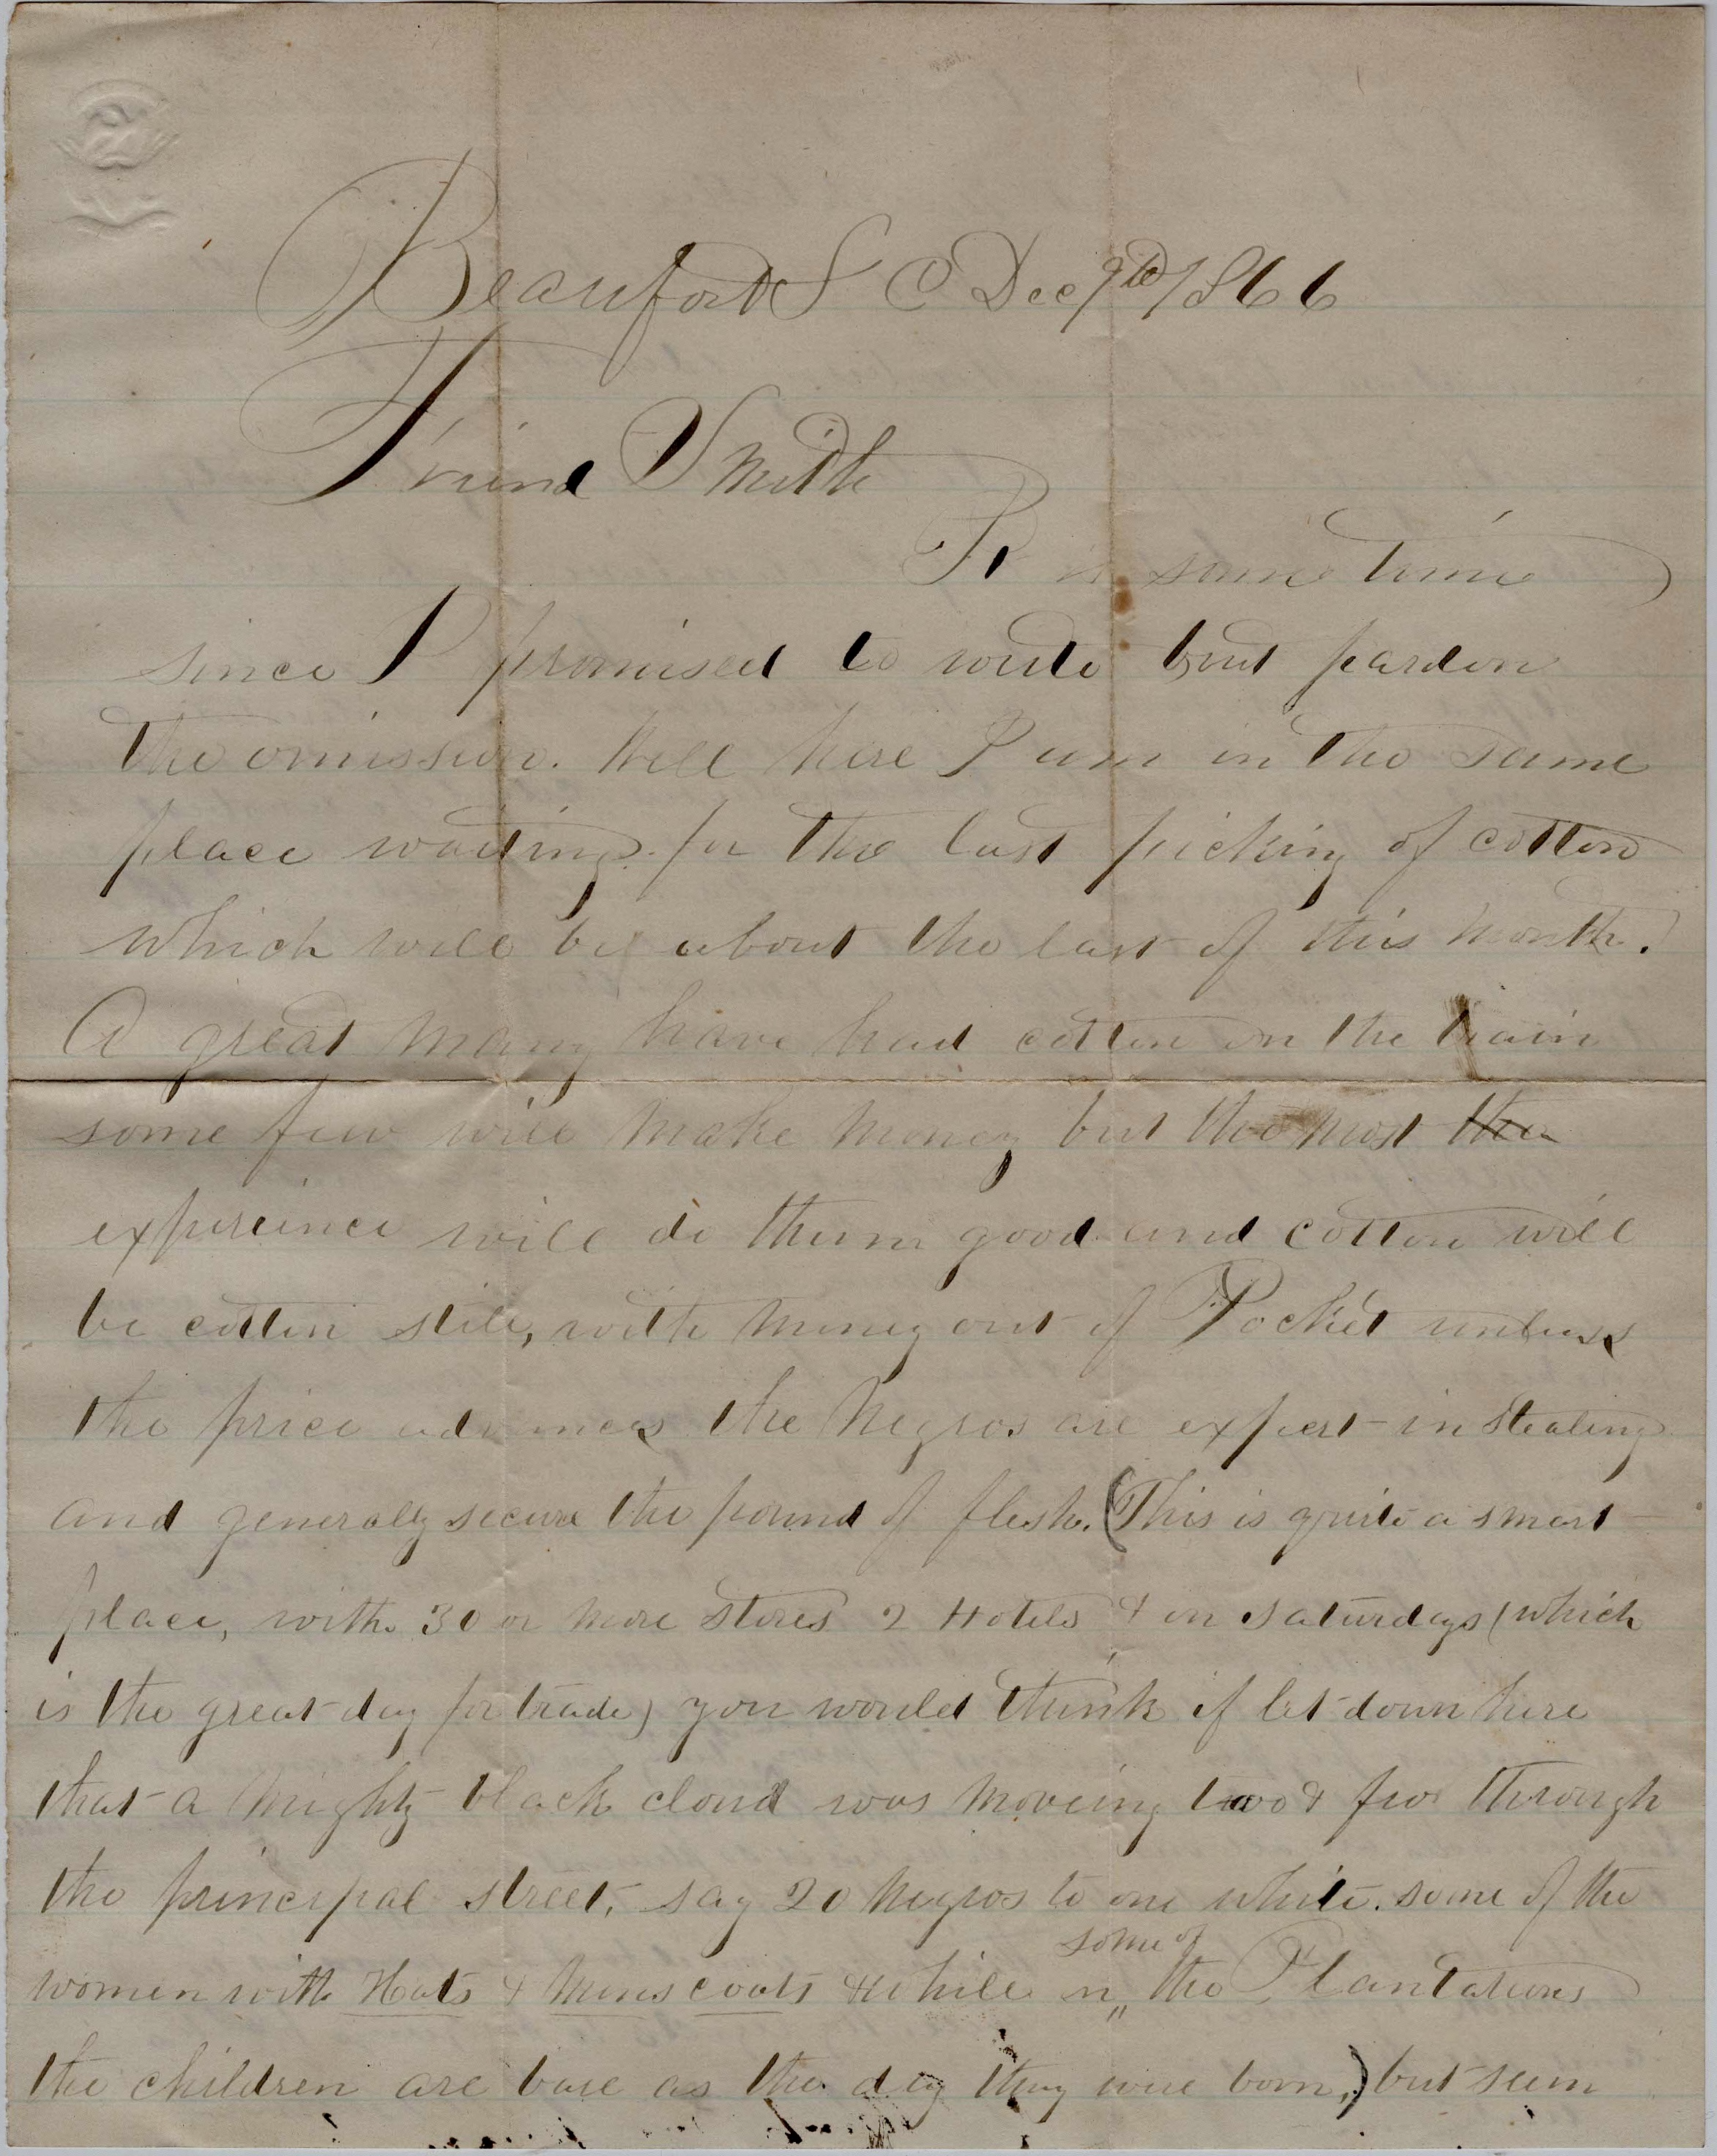 Beaufort S C Dec 9th/866
Friend Smith
It is some time
since I promised to write but pardon
the omission. Well here I am in the same
place waiting for the last picking of cotton
which will be about the last of this month.
A great many have had cotton on the brain
some few will make money but the most the
expereince will do them good and cotton will
be cotton still, with money out of Pocket unless
the price advances the Negros are expert in stealing
and generally secure the pound of flesh. (This is quite a smart
place, with 30 or more stores 2 Hotels & on Saturdays (which
is the great day for trade) you would think if let down here
that a mighty black cloud was moveing too & fro through
the principal street, say 20 Negros to one white. some of the
women with Hats & mens coats & while on some of the Plantations
the children are bare as the day they were born,) but seem